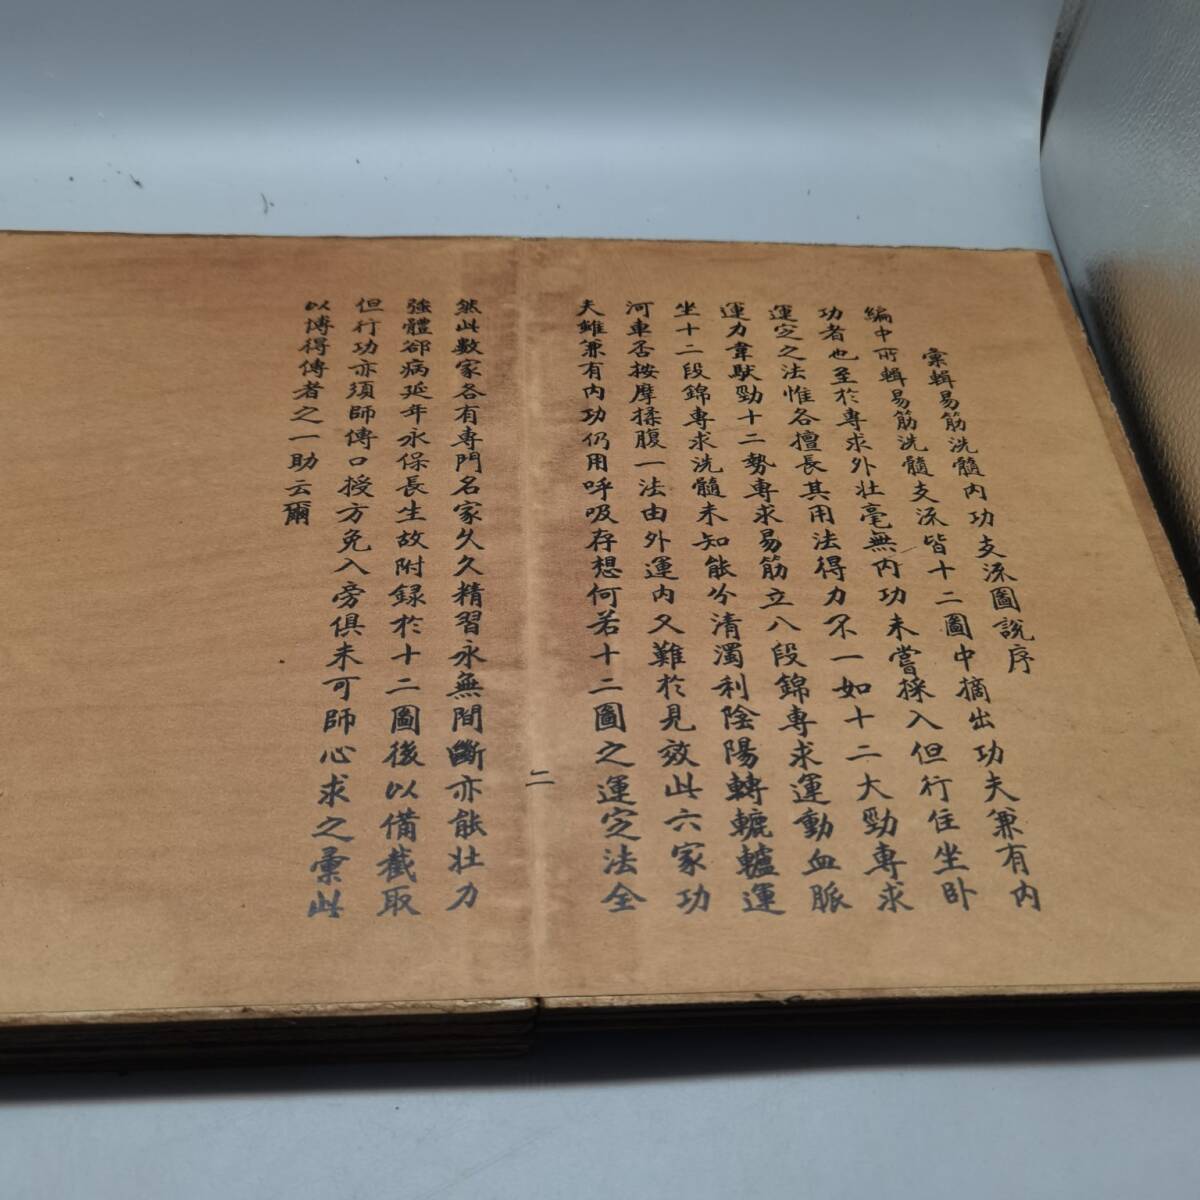 彙輯易筋洗髓內功支流圖說序
編中所輯易筋洗髓支流皆十二圖中摘出功夫兼有內
功者也至於專求外壯毫無內功未嘗採入但行住坐卧
運定之法惟各擅長其用法得力不一如十二大勁專求
運力韋馱勁十二勢專求易筋立八段錦專求運動血脈
坐十二段錦專求洗髓未知能分清濁利陰陽轉轆轤運
河車否按摩揉腹一法由外運內又難於見效此六家功
夫雖兼有內功仍用呼吸存想何若十二圖之運定法全
二
然此數家各有專門名家久久精習永無間斷亦能壯力
強體卻病延年永保長生故附録於十二圖後以備截取
但行功亦須師傳口授方免入旁俱未可師心求之彙此
以博得傳者之一助云爾